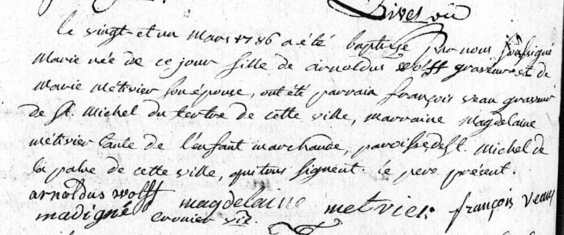 vic
le vingt-et un mars 1786 a été baptisée par nous soussigné
Marie née de ce jour fille de arnoldus wolff graveur et de
Marie Métivier son épouse, ont été parrain françois veau graveur
de St. Michel du tertre de cette ville, marraine Magdelaine
métivier tante de l'enfant marchande, paroisse de St. Michel de
la palue de cette ville, qui tous signent. le pere présent.
arnoldus wolff magdelaine metvier françois veau
madigné vic.